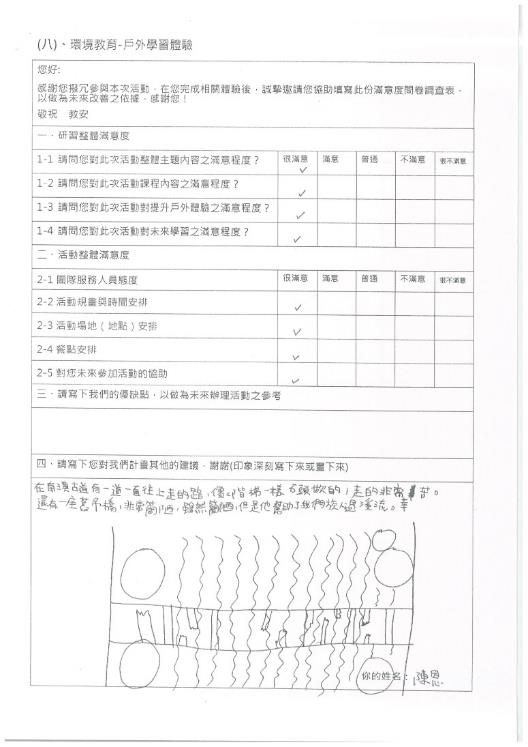 (八)、環境教育-戶外學習體驗
您好:
感謝您撥冗參與本次活動，在您完成相關體驗後，誠摯邀請您協助填寫此份滿意度問卷調查表，
以做為未來改善之依據，感謝您！
敬祝　教安
一．研習整體滿意度
1-1 請問您對此次活動整體主題內容之滿意程度？ 很滿意 滿意 普通 不滿意 很不滿意
✓
1-2 請問您對此次活動課程內容之滿意程度？ ✓
1-3 請問您對此次活動對提升戶外體驗之滿意程度？ ✓
1-4 請問您對此次活動對未來學習之滿意程度？ ✓
二．活動整體滿意度
2-1 團隊服務人員態度 很滿意 滿意 普通 不滿意 很不滿意
2-2 活動規畫與時間安排 ✓
2-3 活動場地（地點）安排 ✓
2-4 餐點安排 ✓
2-5 對您未來參加活動的協助 ✓
三．請寫下我們的優缺點，以做為未來辦理活動之參考
四、請寫下您對我們計畫其他的建議，謝謝(印象深刻寫下來或畫下來)
在魚湞古道有一道一直往上走的路，像階梯一樣石頭做的，走的非常辛苦。
還有一座吊橋，非常簡陋，雖然簡陋，但是他幫助了我們族人過溪流。
你的姓名：陳恩